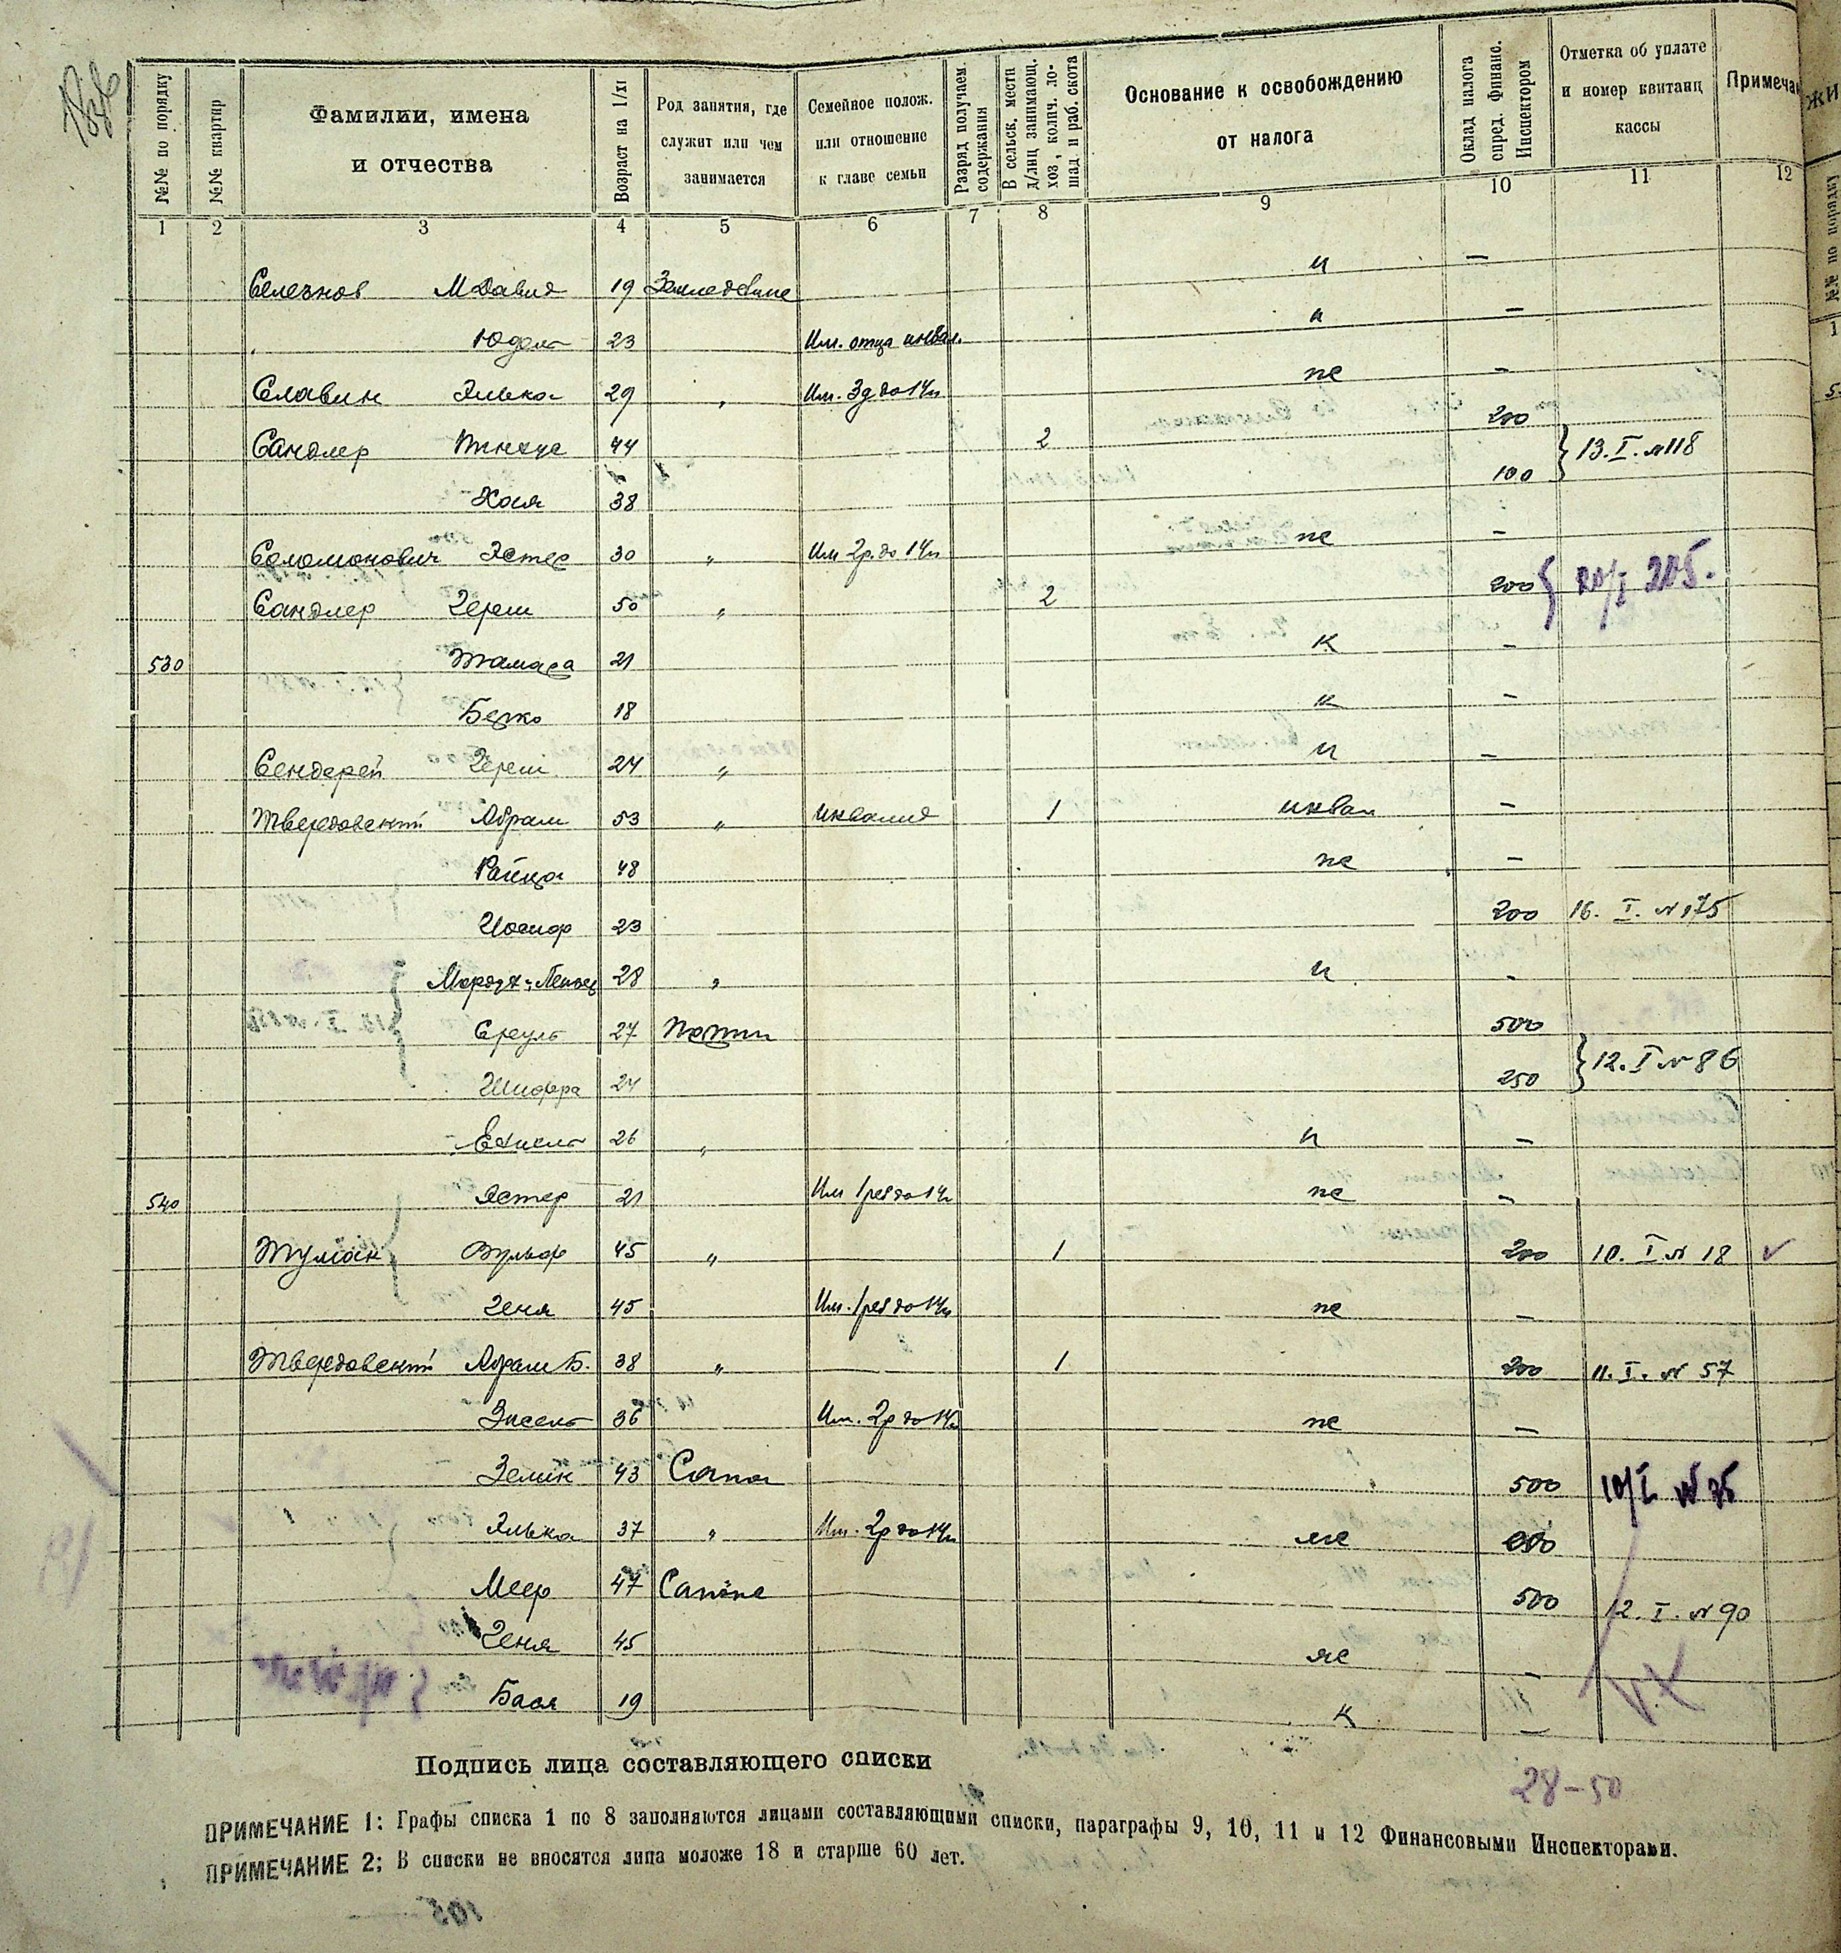 №№ по порядку
№№ квартир
Фамилии, имена
и отчества
Возраст на 1/XI
Род занятия, где
служит или чем
занимается
Семейное полож.
или отношение
к главе семьи
Разряд получаем.
содержания
В сельск. мести
д/лиц занимающ.
хоз, колич. ло-
шад и раб. скота
Основание к освобождению
от налога
Оклад налога
опред. Финанс.
Инспектором
Отметка об уплате
и номер квитанц
кассы
Примеча
1 2 3 4 5 6 7 8 9 10 11 12
Селезнов М Давид 19 Земледелие и —
Юдол 23 Им. отца инвал. и —
Славин Элька 29 „ Им. 3д до 14л не —
Сандлер Пинхус 44 2 200
} 13. I. №118
Хася 38 100
Соломонович Эстер 30 „ Им 2р. до 14л не —
Сандлер Герш 50 „ 2 200 { 20/I 205.
530 Тамара 21 К —
Берко 18 К —
Сендерей Герш 24 „ и —
Твердовский Абрам 53 „ инвалид 1 инвал —
Райца 48 не —
Иосиф 23 200 16. I. №175
Мордух- 28 „ и —
Сруль 27 500
} 12. I № 86
Шифра 24 250
Ехиель 26 „ и —
540 Эстер 21 Им 1реб до 14л не —
Тулман Вульф 45 „ 1 200 10. I № 18 ✓
Геня 45 Им. 1реб до 14л не —
Твердовский Абрам Б. 38 „ 1 200 11. I. № 57
Энсель 36 Им. 2р до 14л не —
Зелик 43 Сапож 500 10/I №
Элька 37 „ Им. 2р до 14л не
Меер 47 Сапожн 500 12. I. № 90
Геня 45 не —
Бася 19 К —
Подпись лица составляющего списки
28–50
ПРИМЕЧАНИЕ 1: Графы списка 1 по 8 заполняются лицами составляющими списки, параграфы 9, 10, 11 и 12 Финансовыми Инспекторами.
ПРИМЕЧАНИЕ 2; В списки не вносятся лица моложе 18 и старше 60 лет.